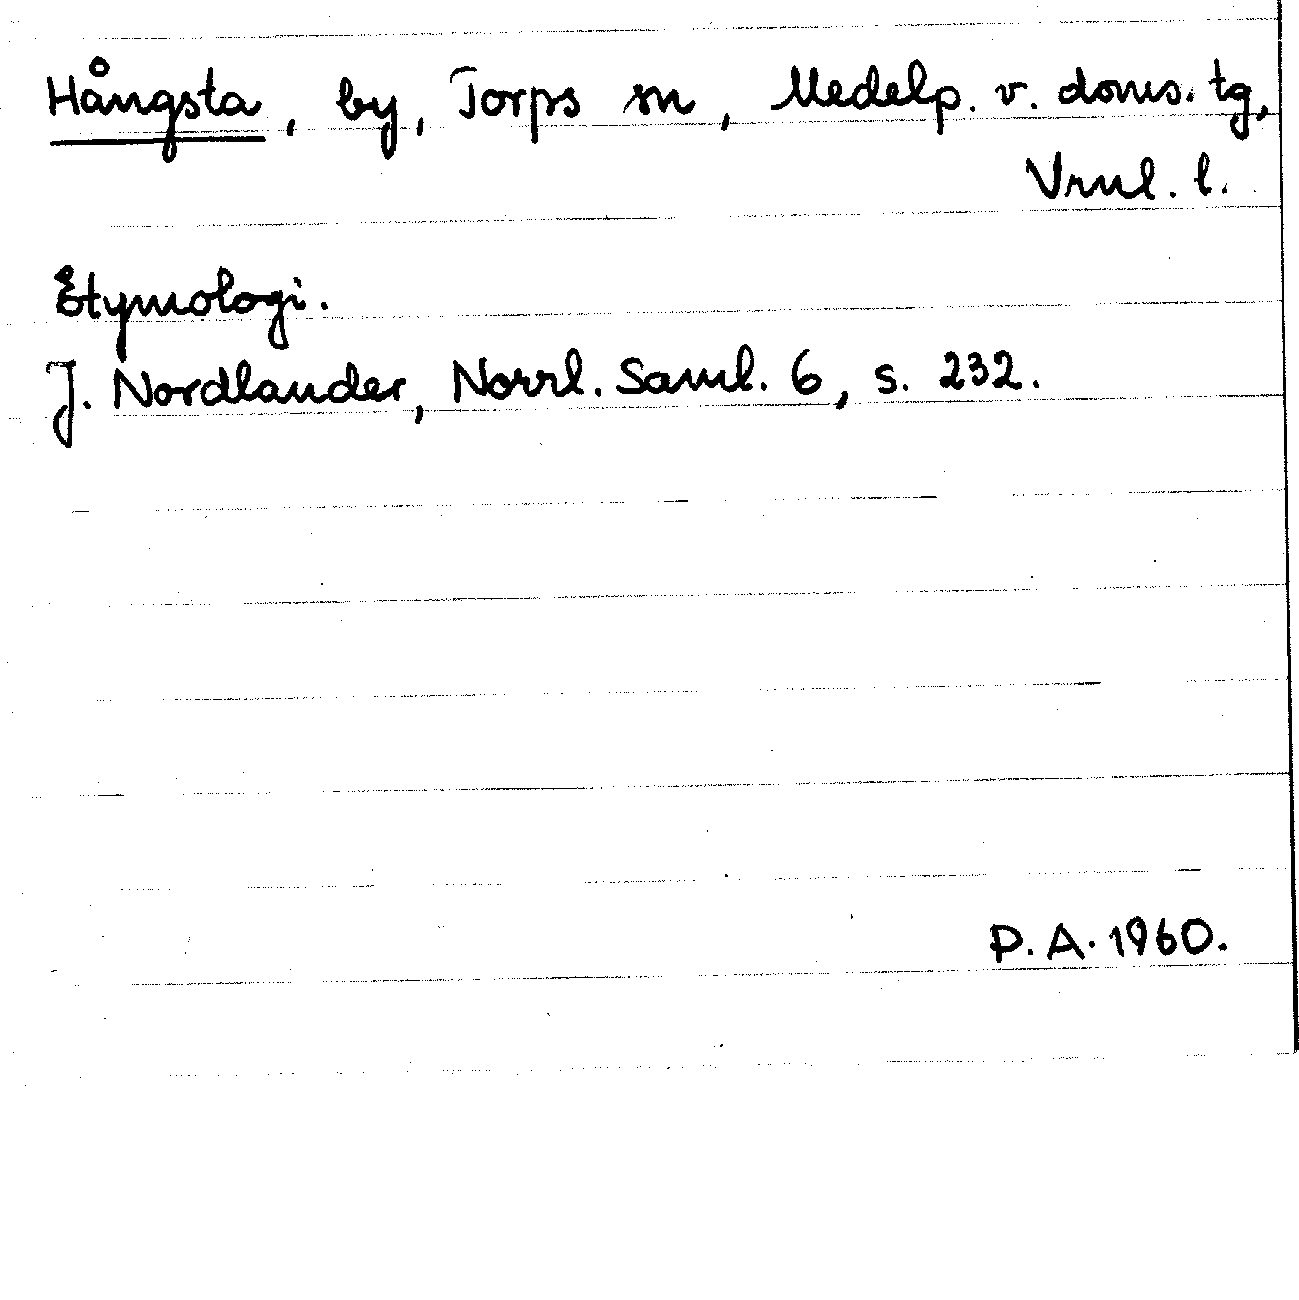 Hångsta, by, Torps sn, Medelp. v. doms. tg,
Vrnl. l.
Etymologi.
J. Nordlander, Norrl. Saml. 6, s. 232.
P. A. 1960.